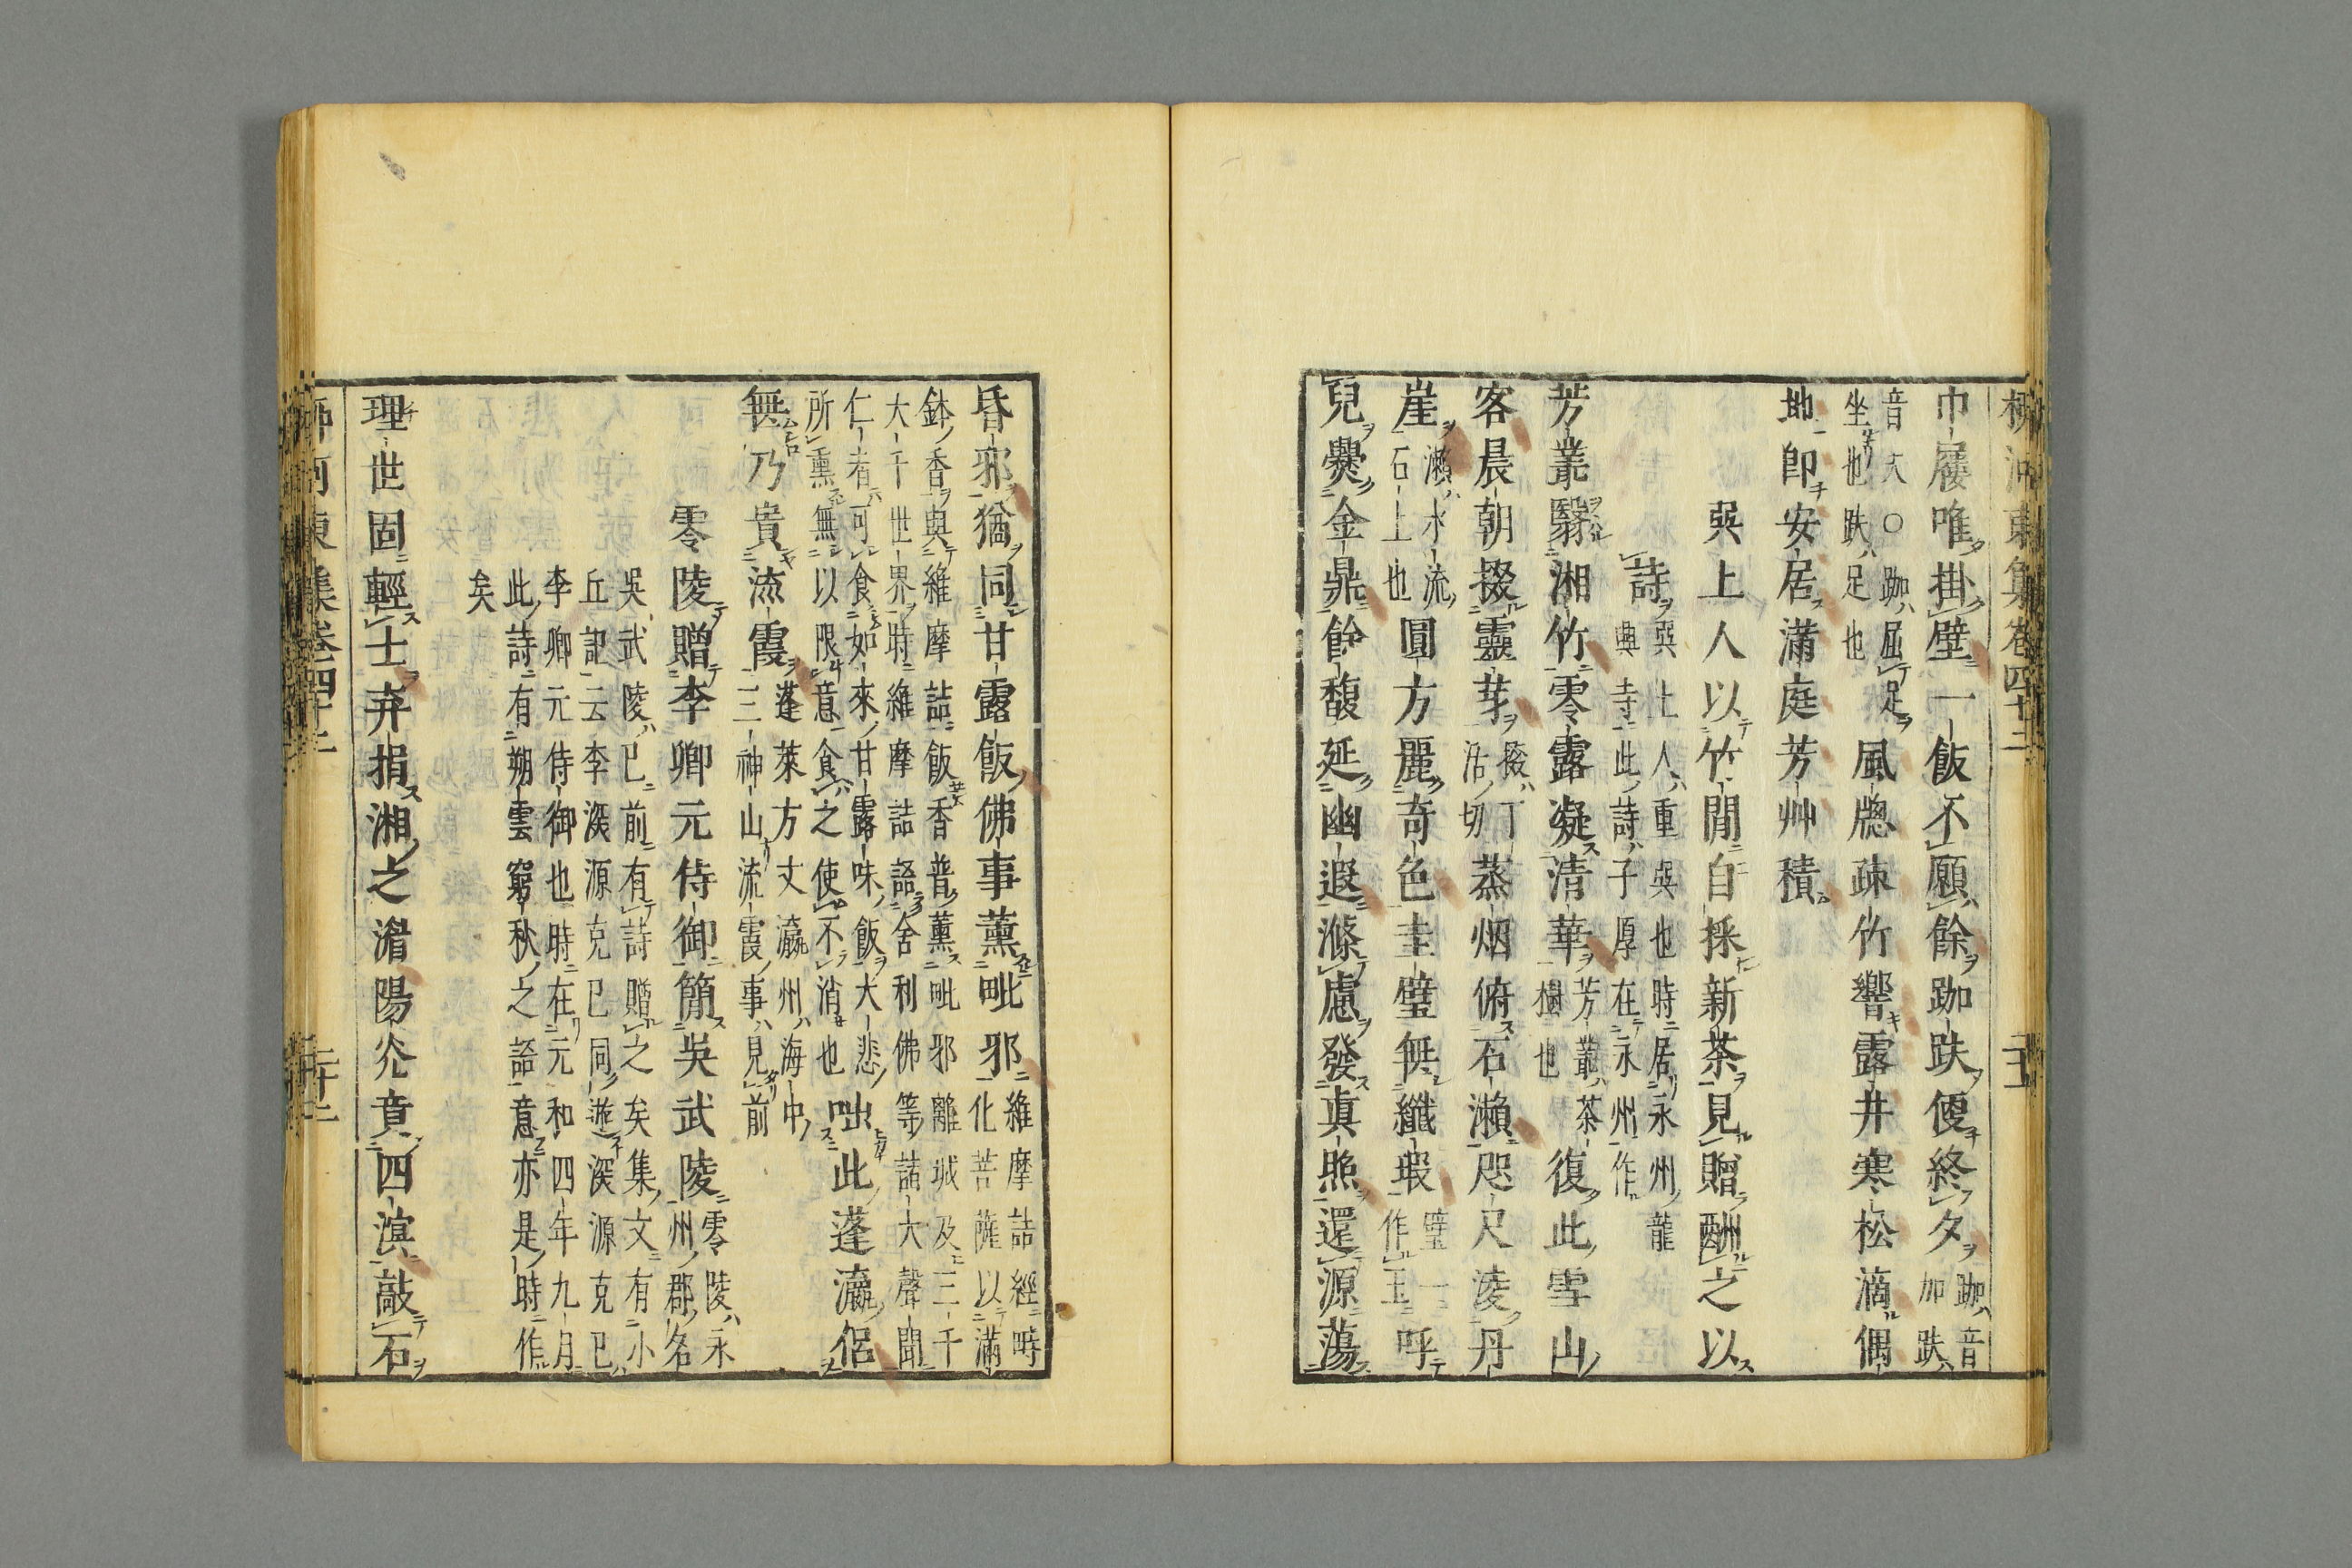 柳河東集卷四十二
巾屨唯掛壁一飯不願餘跏趺便終夕跏音加趺
音夫○跏屈足坐也趺足也風牕疎竹響露井寒松滴偶
地即安居滿庭芳艸積
巽上人以竹閒自採新茶見贈酬之以
詩巽上人重巽也時居永州龍興寺此詩子厚在永州作
芳叢翳湘竹零露凝清華芳叢茶樹也復此雪山
客晨朝掇靈芽掇丁活切蒸烟俯石瀨咫尺淩丹
崖瀨水流石上也圓方麗奇色圭璧無纖瑕璧一作玉呼
兒爨金鼎餘馥延幽遐滌慮發真照還源蕩
昏邪猶同甘露飯佛事薰毗邪維摩詰經時化菩薩以滿
鉢香與維摩詰飯香普薰毗邪離城及三千大千世界時維摩詰語舍利佛等諸大聲聞
仁者可食如來甘露味飯大悲所熏無以限意食之使不消也咄此蓬瀛侶
無乃貴流霞蓬萊方丈瀛州海中三神山流霞事見前
零陵贈李卿元侍御簡吳武陵零陵永州郡名
吳武陵已前有詩贈之矣集文有小丘記云李深源克已同遊深源克已
李卿元侍御也時在元和四年九月此詩有朔雲窮秋之語意亦是時作
矣
理世固輕士弃捐湘之湄陽光竟四溟敲石
柳河東集卷四十二 二十二